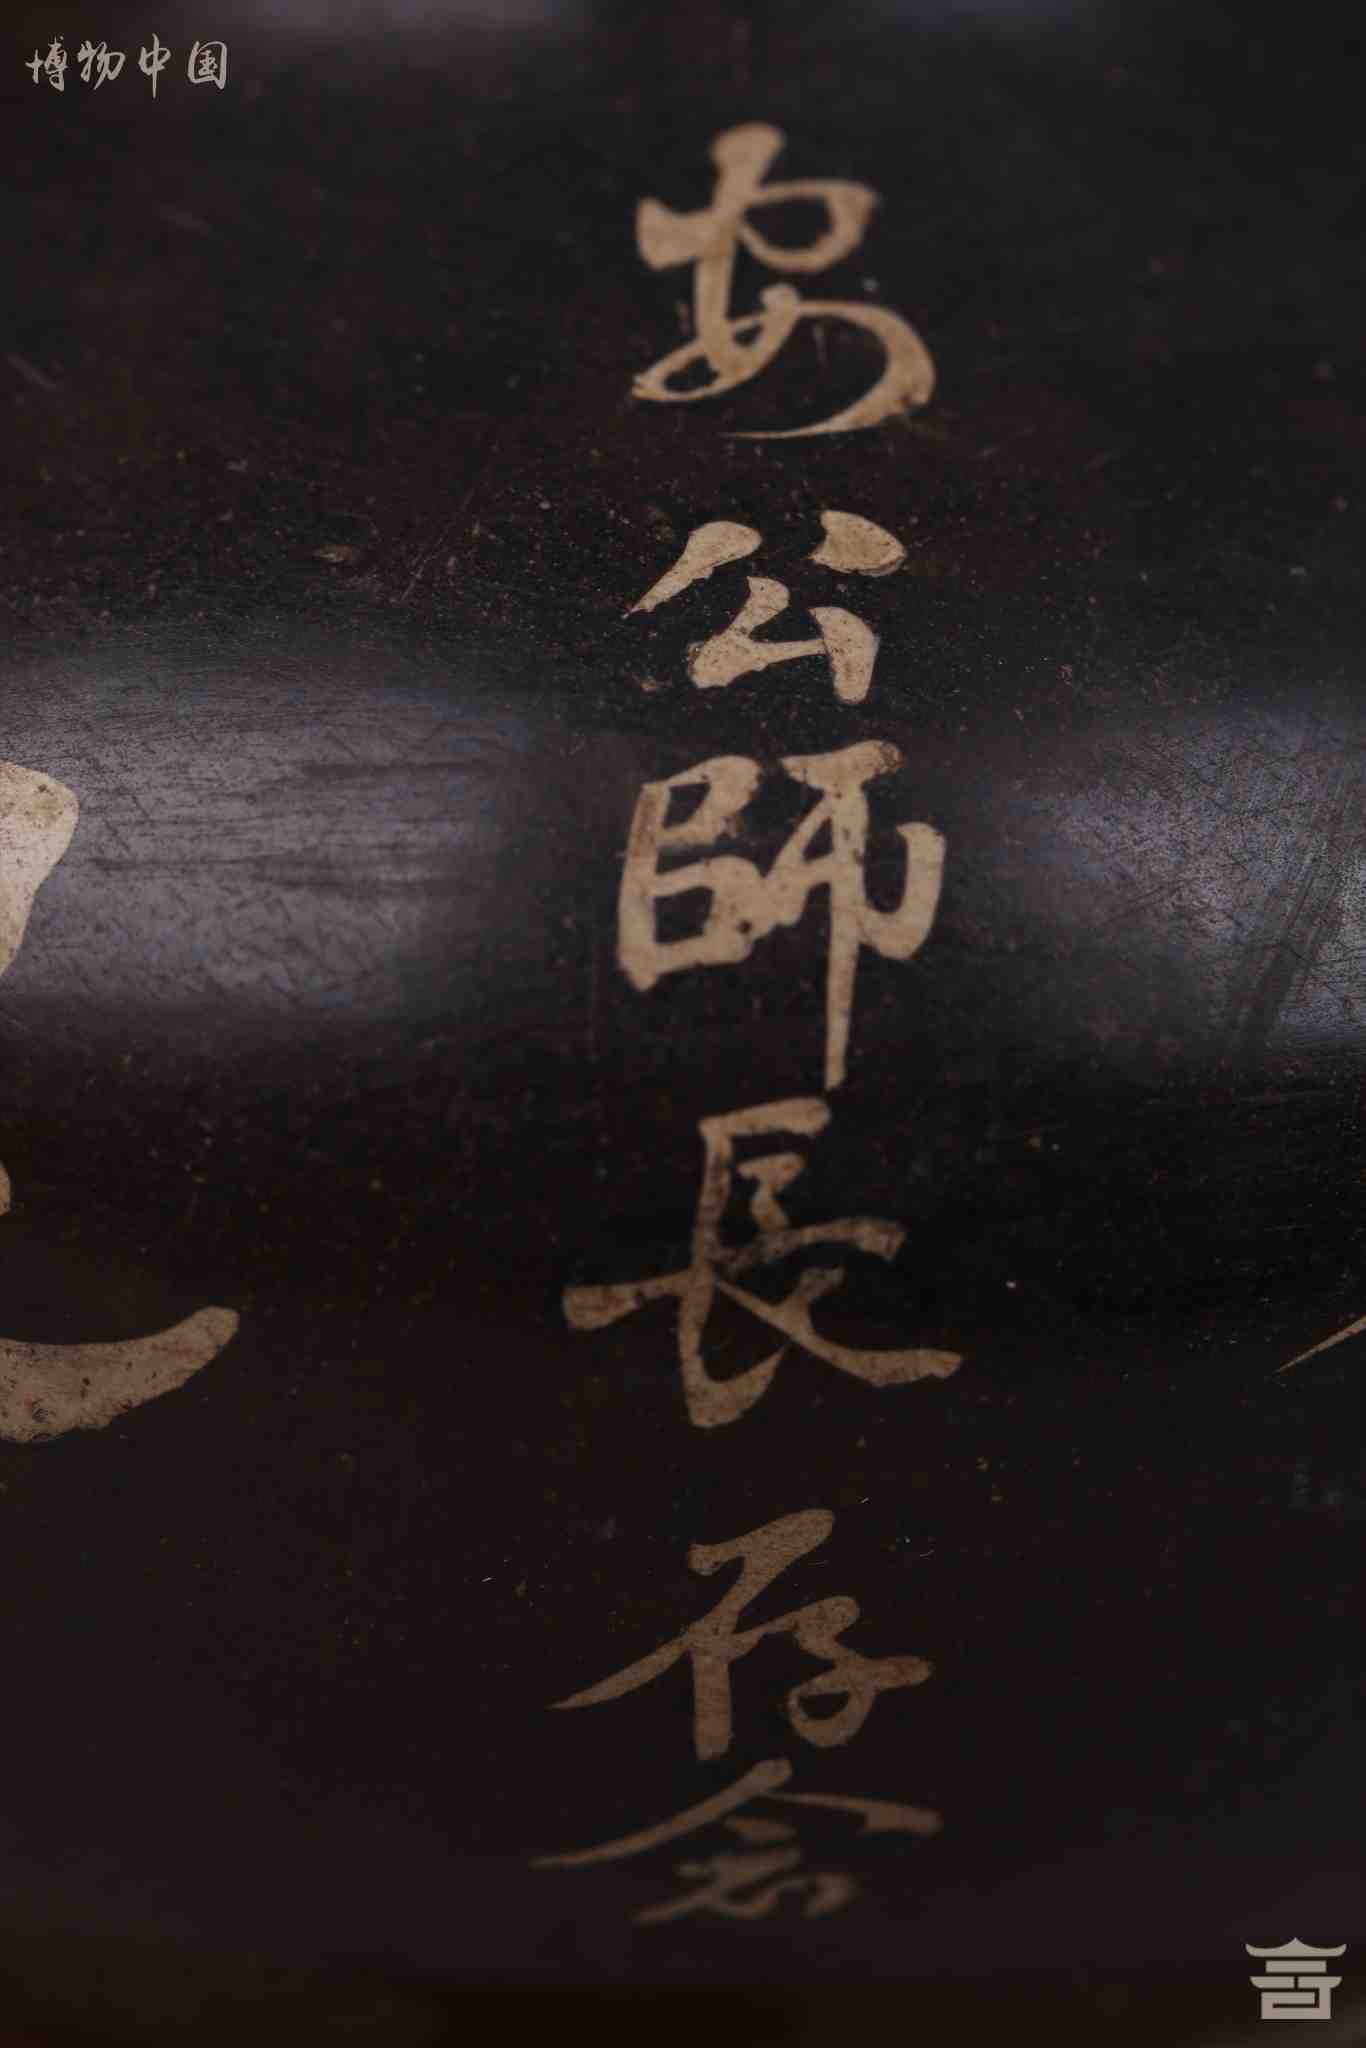 博物中国
安公師長存念